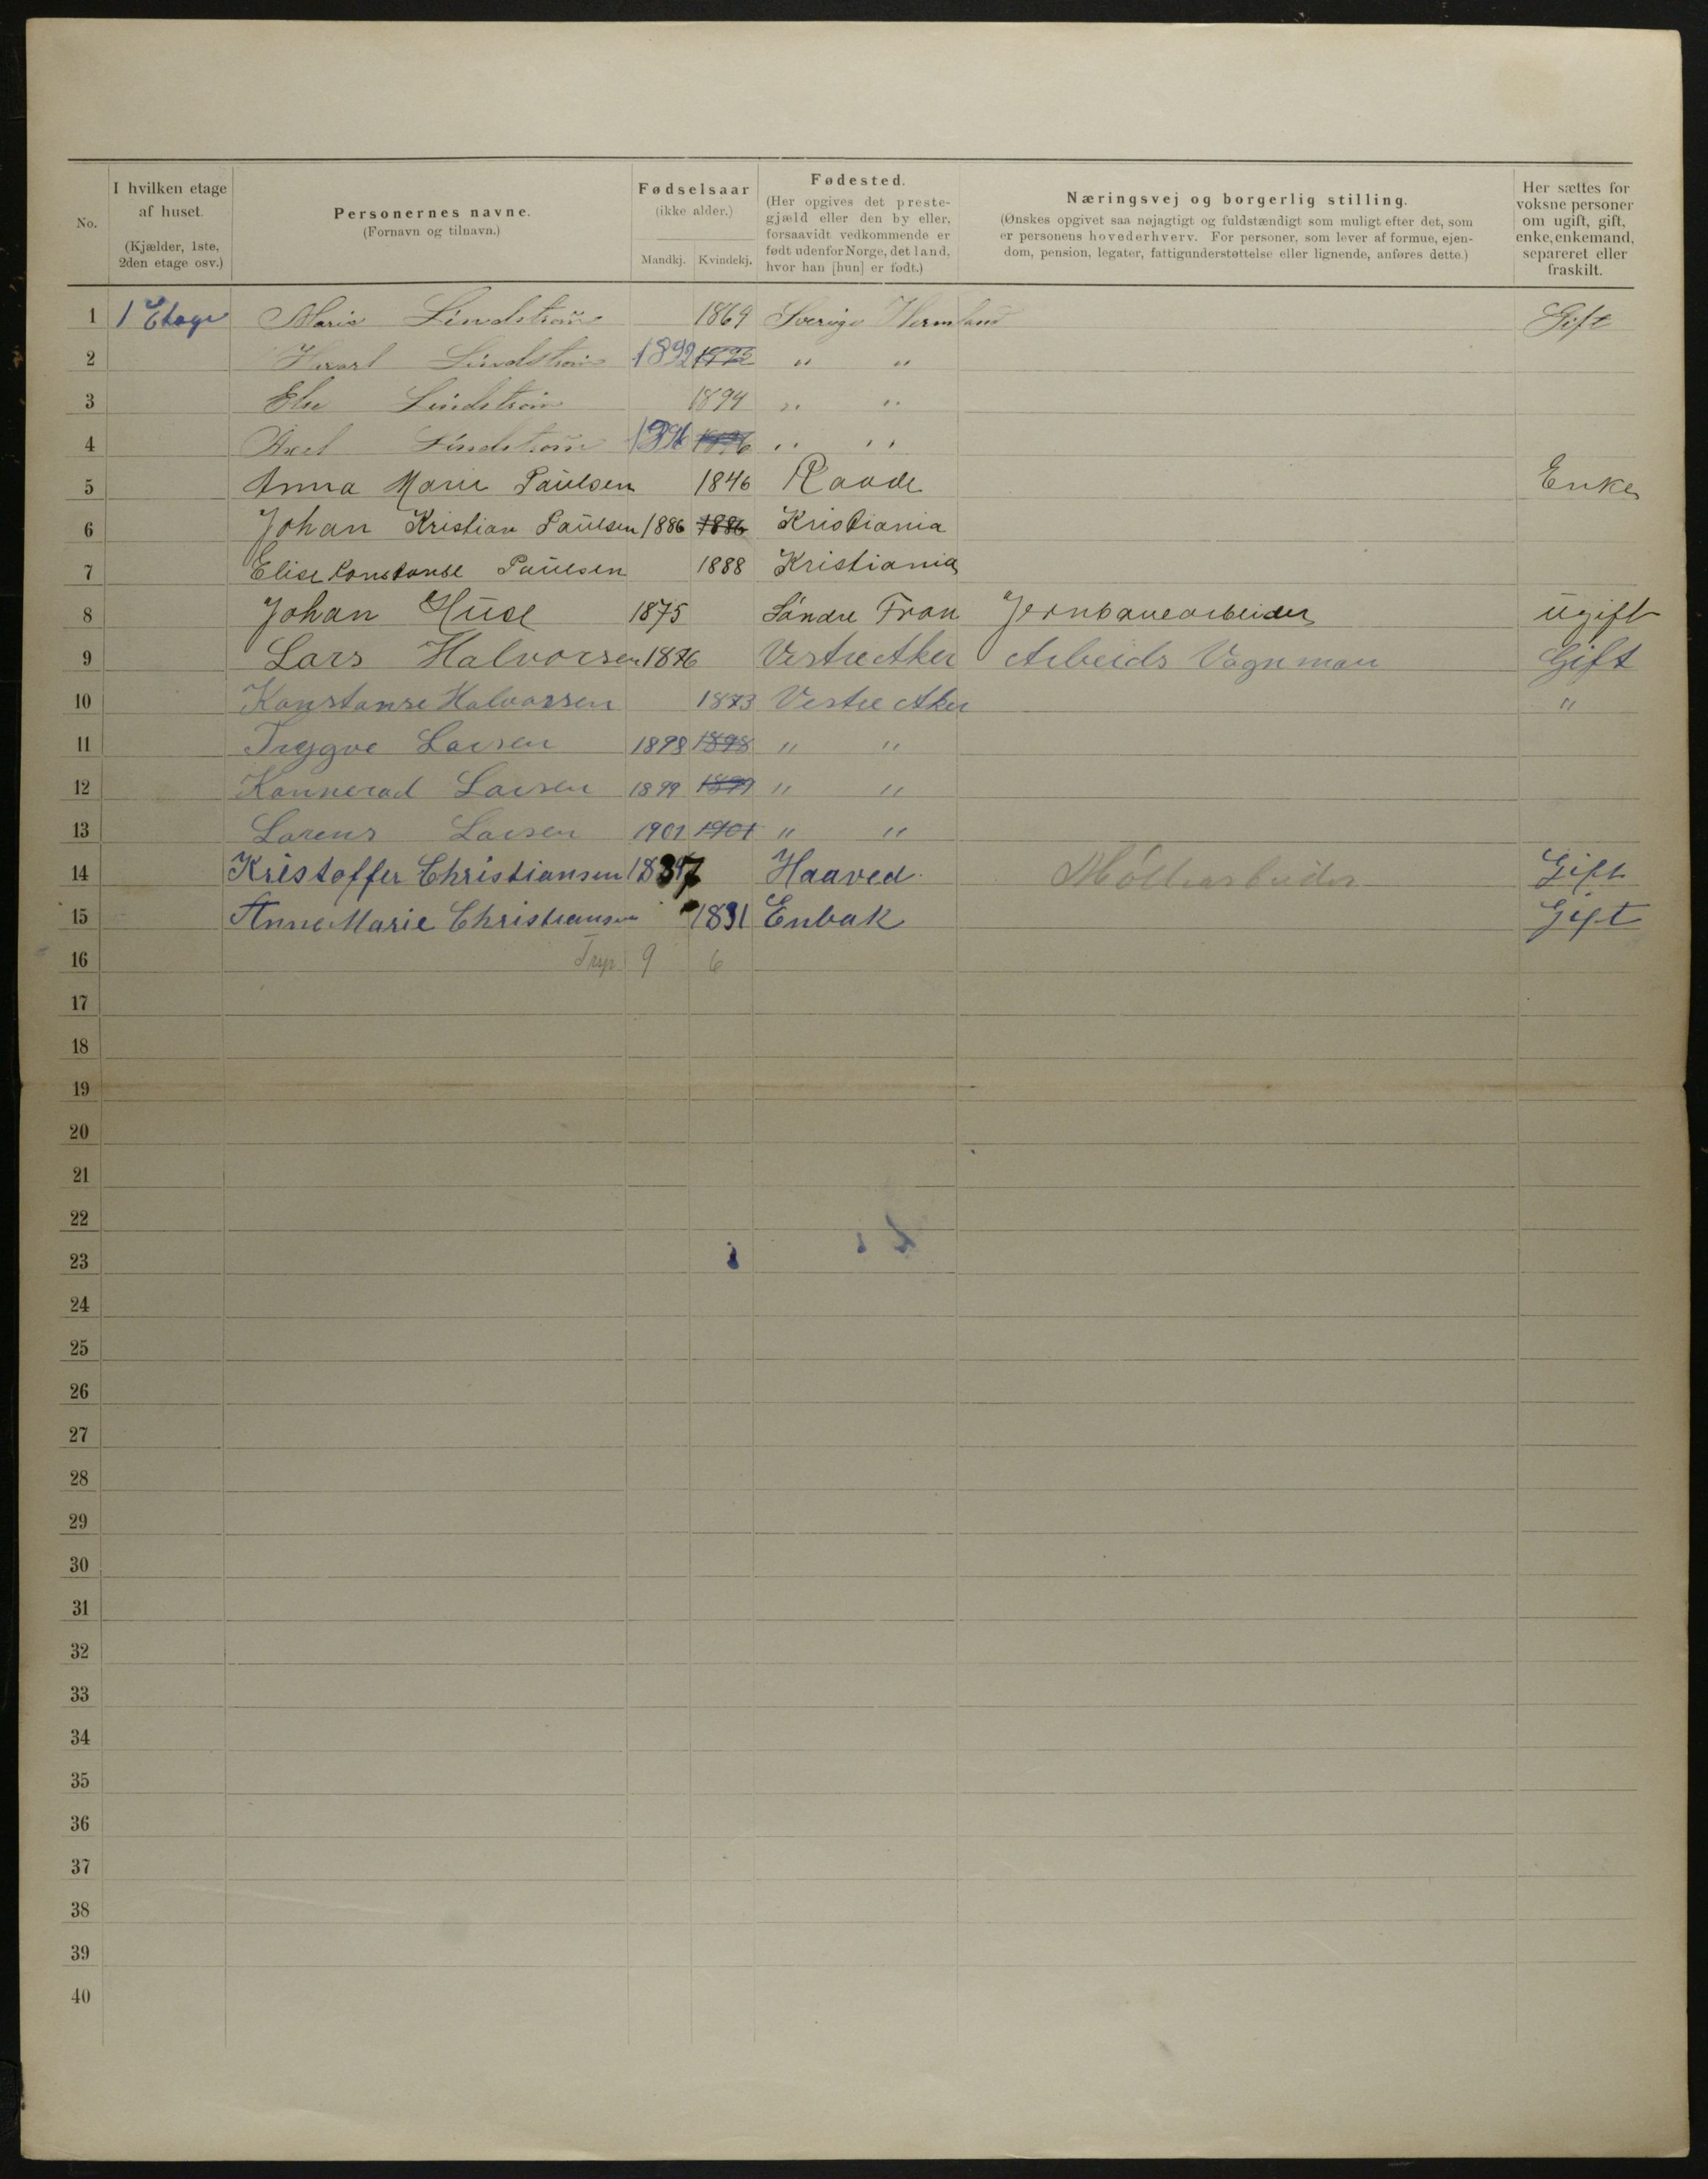 No.
I hvilken etage af huset. (Kjælder, 1ste, 2den etage osv.)
Personernes navne. (Fornavn og tilnavn.)
Fødselsaar (ikke alder.)
Mandkj. Kvindekj.
Fødested. (Her opgives det prestegjæld eller den by eller, forsaavidt vedkommende er født udenfor Norge, det land, hvor han [hun] er født.)
Næringsvej og borgerlig stilling.
(Ønskes opgivet saa nøjagtigt og fuldstændigt som muligt efter det, som er personens hovederhverv. For personer, som lever af formue, ejendom, pension, legater, fattigunderstøttelse eller lignende, anføres dette.)
Her sættes for voksne personer om ugift, gift, enke, enkemand, separeret eller fraskilt.
1 1 Etage Maria Lindström 1869 Sverige Gift
2 Lindström 1892 " "
3 Else Lindström 1894 " "
4 Axel Lindström 1896 1896 " "
5 Anna Marie Paulsen 1846 Raade Enke
6 Johan Kristian Paulsen 1886 1886 Kristiania
7 Elise Konstanse Paulsen 1888 Kristiania
8 Johan Huse 1875 Söndre Fron Jernbanearbeider ugift
9 Lars Halvorsen 1876 Vestre Aker Arbeids Vognman Gift
10 Konstanse Halvorsen 1873 Vestre Aker "
11 Tryggve Larsen 1898 1898 " "
12 Konnerad Larsen 1899 1899 " "
13 Lorens Larsen 1901 1901 " "
14 Kristoffer Christiansen 1837 Haaved Gift
15 Anne Marie Christiansen 1831 Enbak Gift
16 9 6
17
18
19
20
21
22
23
24
25
26
27
28
29
30
31
32
33
34
35
36
37
38
39
40